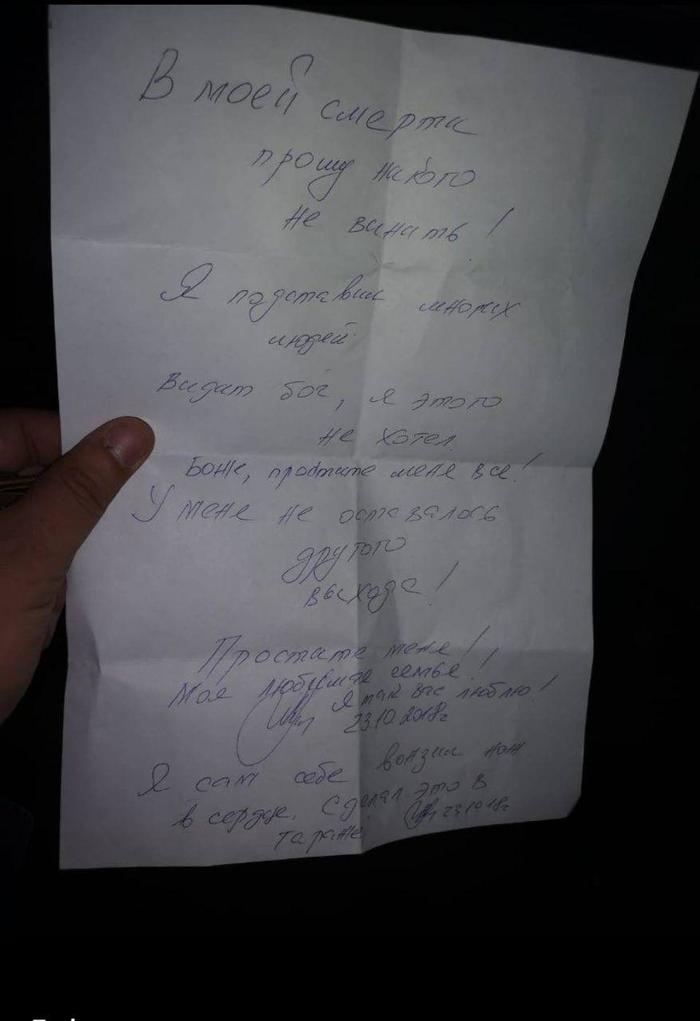 В моей смерти
прошу никого
не винить!
Я подставил многих
людей.
Видит бог, я этого
не хотел.
Боже, простите меня все!
У меня не оставалось
другого
выхода!
Простите меня!
Моя любимая семья!
Я так вас люблю!
23.10.2018г
Я сам себе вонзил нож
в сердце. Сделал это в
гараже!
23.10.18г